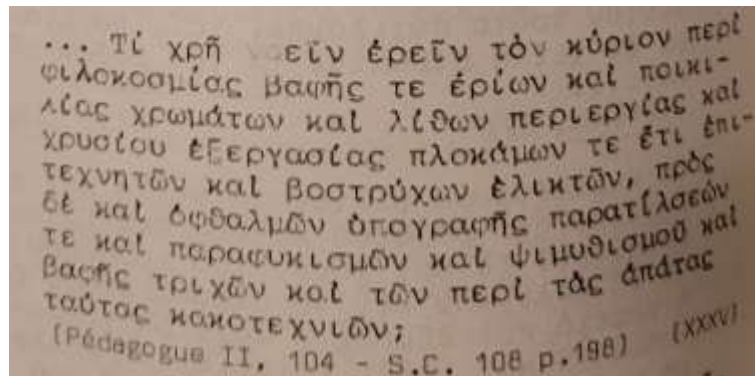 ... Τί χρῆ εῖν ἐρεῖν τὸν κύριον περὶ
φιλοκοσμίας βαφῆς τε ἐρίων καὶ ποικι-
λίας χρωμάτων καὶ λίθων περιεργίας καὶ
χρυσίου ἐξεργασίας πλοκάμων τε ἔτι ἐπι-
τεχνητῶν καὶ βοστρύχων ἑλικτῶν, πρὸς
δὲ καὶ ὀφθαλμῶν ὑπογραφῆς παρατίλσεών
τε καὶ παραφυκισμῶν καὶ ψιμυθισμοῦ καὶ
βαφῆς τριχῶν καὶ τῶν περὶ τὰς ἀπάτας
ταύτας κακοτεχνιῶν;
(Pédagogue II, 104 - S.C. 108 p.198) (XXXV)